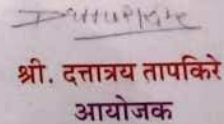 श्री. दत्तात्रय तापकिरे
आयोजक